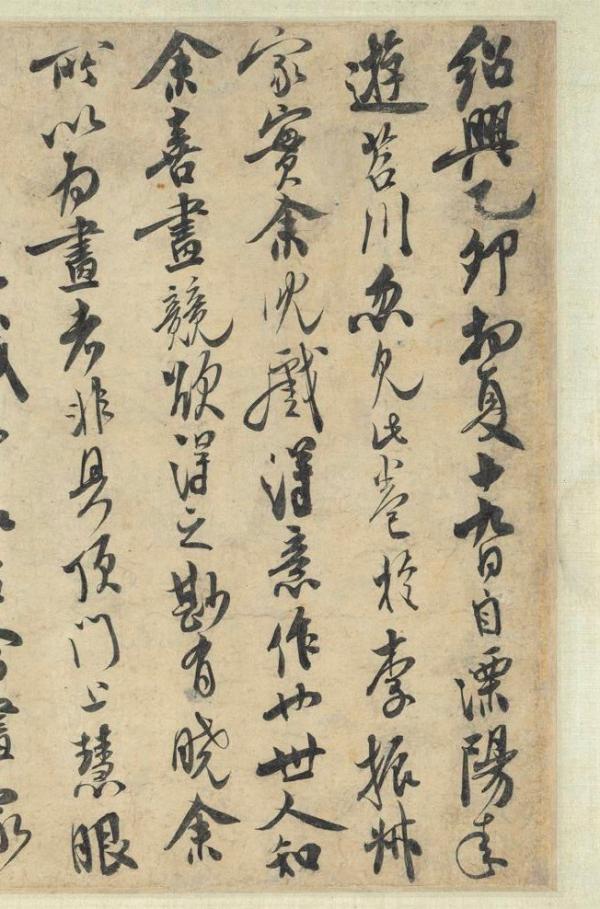 紹興乙卯初夏十九日自溧陽來
遊苕川忽見此小卷於李振叔
家實余兒戲得意作也世人知
余喜畫競欲得之尠有曉余
所以為畫者非具頂門上慧眼